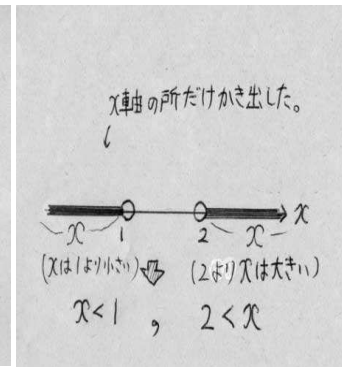 x軸の所だけかき出した。
x
x 1 2 x
(xは1より小さい) (2よりxは大きい)
x<1 , 2<x